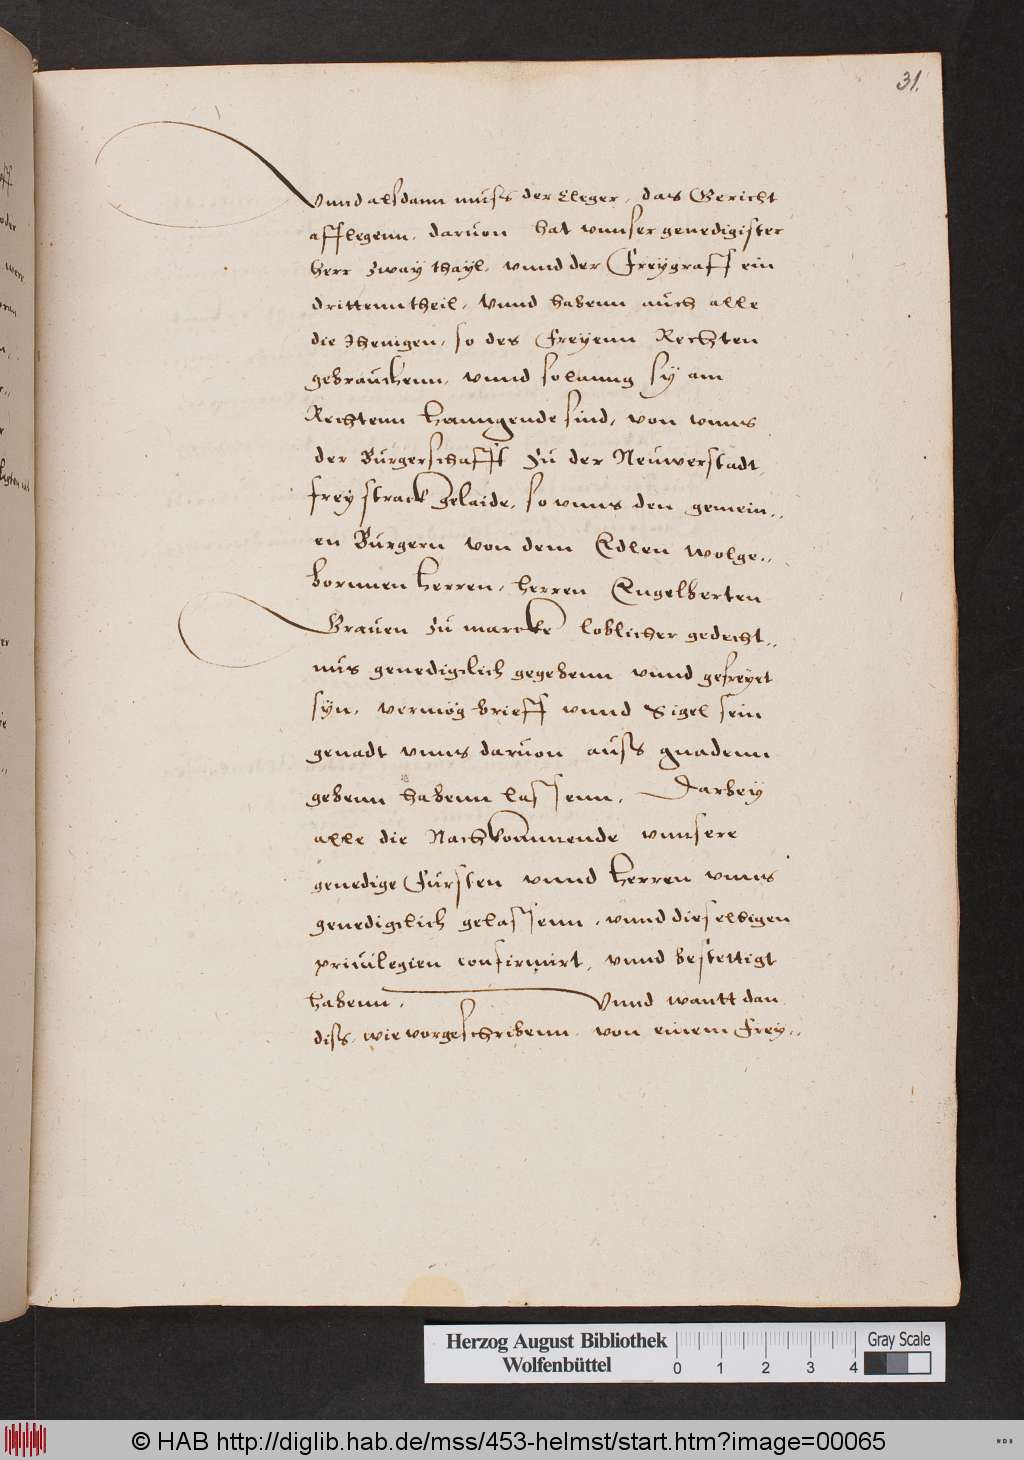 31.
Vnnd alsdann muss der Cleger, das Gericht
afflegenn, daruon hat vnnser genedigister
herr zway thayl, vnnd der Freygraff ein
drittenntheil, Vnnd habenn auch alle
die Jhenigen, so des Freyenn Rechten
gebrauckenn, vnnd solanng sy am
Rechtenn hanngende sind, von vnns
der Burgerschafft zu der Neuwerstadt,
frey strack gelaide, so vnns den gemein,,
en Burgern von dem Edlen wolge,,
bornnen herren, herren Engelberten
Grauen zu marcke loblicher gedecht,,
nus genediglich gegebenn vnnd gefreyet
syn, vermög brieff vnnd Sigel sein
genadt vnns daruon auss gnadenn
gebenn habenn lassenn, Darbey
alle die Nachkommende vnnsere
genedige Fürsten vnnd herren vnns
genediglich gelassenn, vnnd dieselbigen
priuilegien confirmirt, vnnd bestettigt
habenn, Vnnd wantt dan
diss, wie vorgeschribenn, von einem Frey,,
Herzog August Bibliothek
Wolfenbüttel
0 1 2 3 4
Gray Scale
© HAB http://diglib.hab.de/mss/453-helmst/start.htm?image=00065